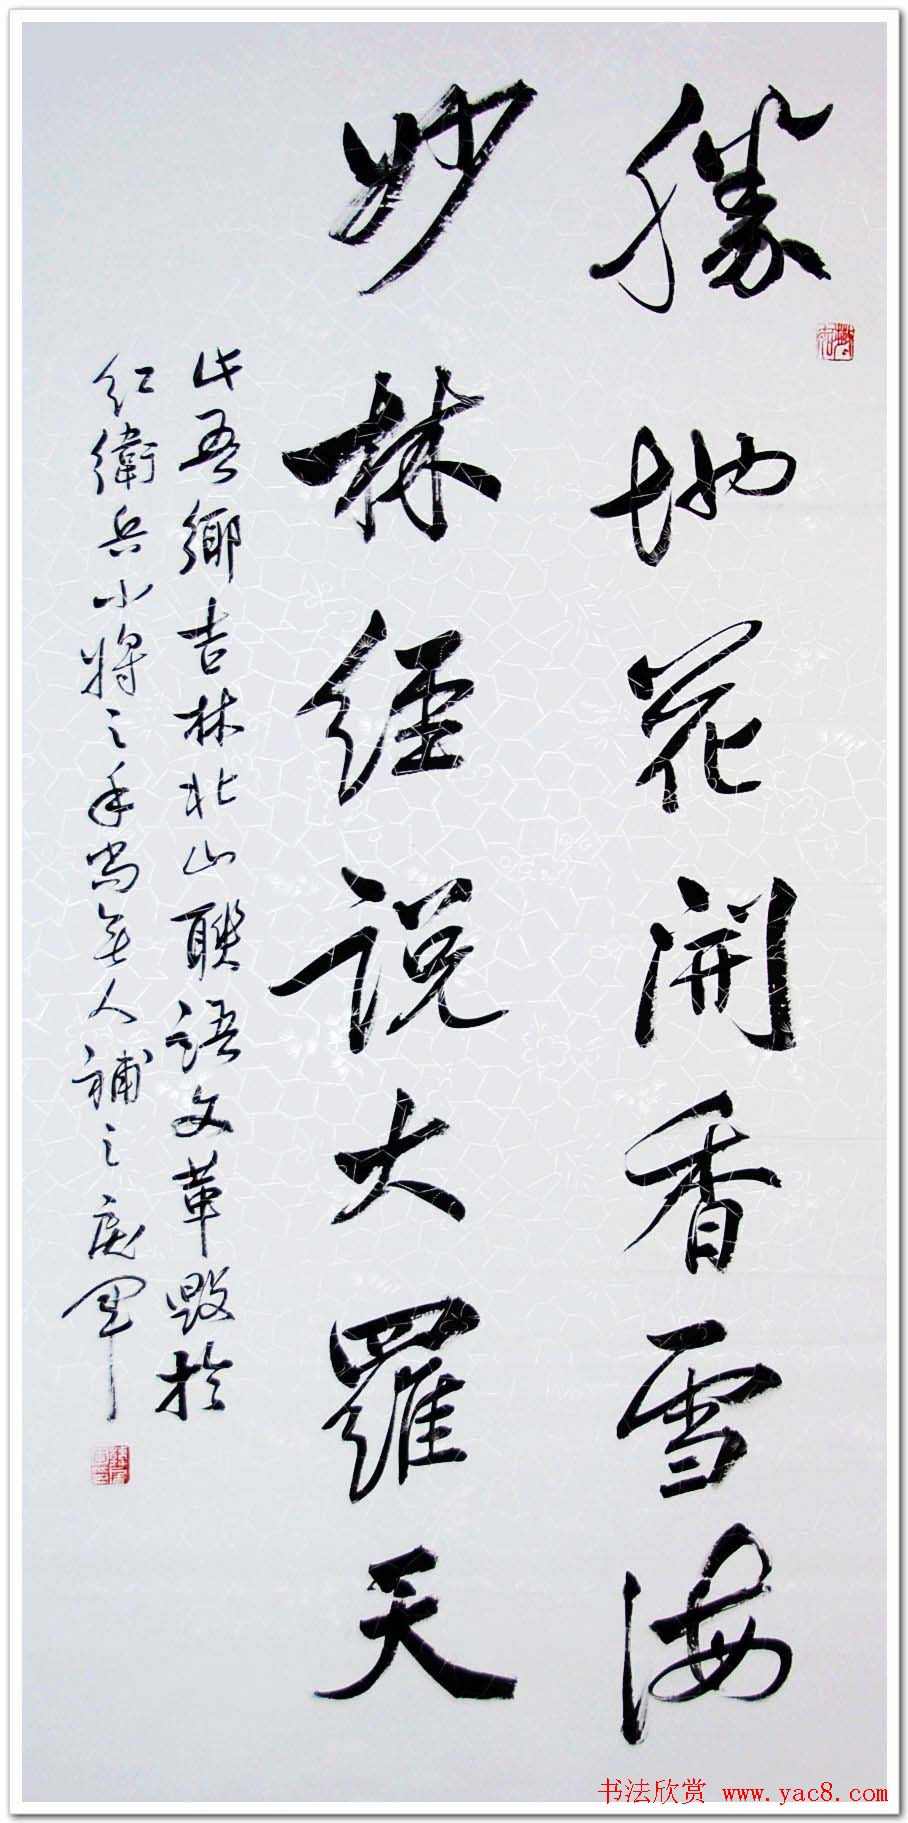 勝地花開香雪海
妙林經说大羅天
此吾鄉吉林北山聯語文革毀於
紅衛兵小將之手尚無人補之庭軍
书法欣赏 www.yac8.com